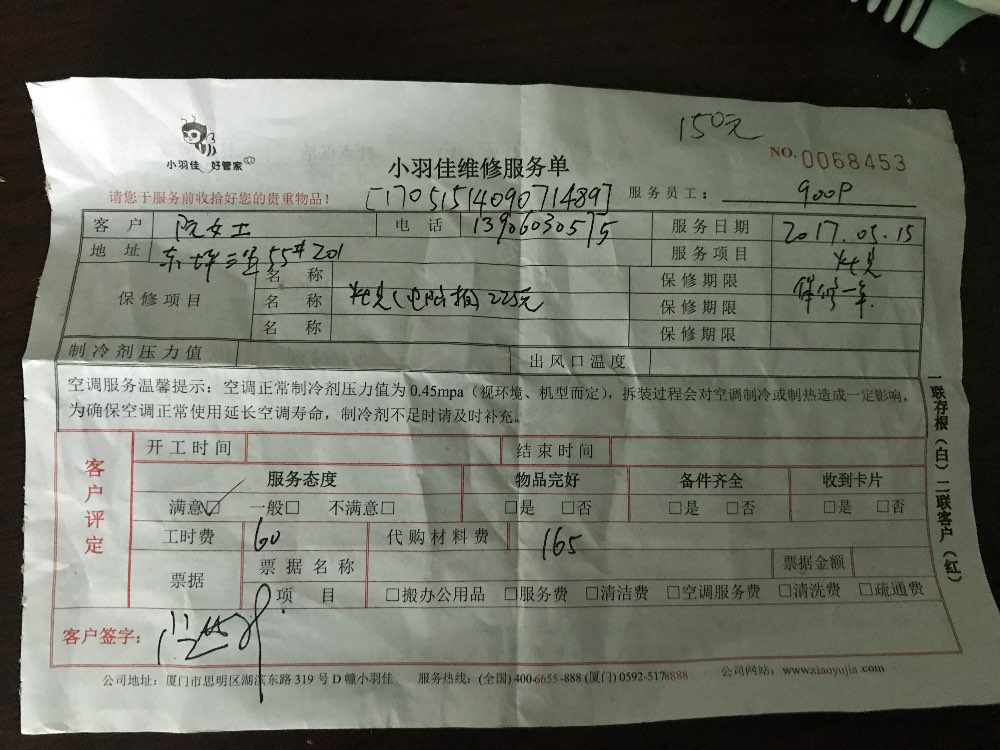 150元
小羽佳 好管家
小羽佳维修服务单
NO. 0068453
请您于服务前收拾好您的贵重物品！ [170515140907 1489] 服务员工：
客户 阮女士 电话 13906030575 服务日期 2017.05.15
地址 55# 201 服务项目 灶具
保修项目 名称 保修期限 保修一年.
名称 灶具(电脉) 225元 保修期限
名称 保修期限
制冷剂压力值 出风口温度
空调服务温馨提示：空调正常制冷剂压力值为 0.45mpa（视环境、机型而定），拆装过程会对空调制冷或制热造成一定影响，
为确保空调正常使用延长空调寿命，制冷剂不足时请及时补充。
客户评定 开工时间 结束时间
服务态度 物品完好 备件齐全 收到卡片
满意□ 一般□ 不满意□ □是 □否 □是 □否 □是 □否
工时费 60 代购材料费 165
票据 票据名称 票据金额
项目 □搬办公用品 □服务费 □清洁费 □空调服务费 □清洗费 □疏通费
客户签字：
公司地址：厦门市思明区湖滨东路 319 号 D 幢小羽佳 服务热线：(全国) 400-6655-888 (厦门) 0592-5178888 公司网站：www.xiaoyujia.com
一联存根（白）二联客户（红）